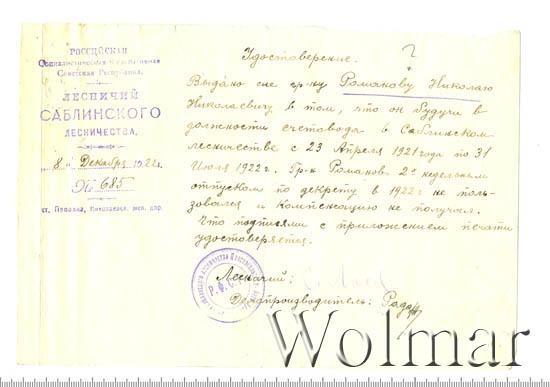 РОССІЙСКАЯ
Социалистическая Федеративная
Советская Республика.
ЛЕСНИЧИЙ
САБЛИНСКОГО
ЛЕСНИЧЕСТВА.
„8" Декабря 1922 г.
№ 685
ст. Поповка, Николаевск. жел. дор.
Удостоверение.
Выдано сие гр-ну Романову Николаю
Николаевичу в том, что он будучи в
должности счетовода в Саблинском
лесничестве с 23 Апреля 1921 года по 31
Июля 1922 г. Гр-н Романов 2х недельным
отпуском по декрету в 1922 г не поль-
зовался и компенсацию не получал.
Что подписями с приложением печати
удостоверяется.
Лесничий:
Делопроизводитель:
Р.Ф.С.
Wolmar